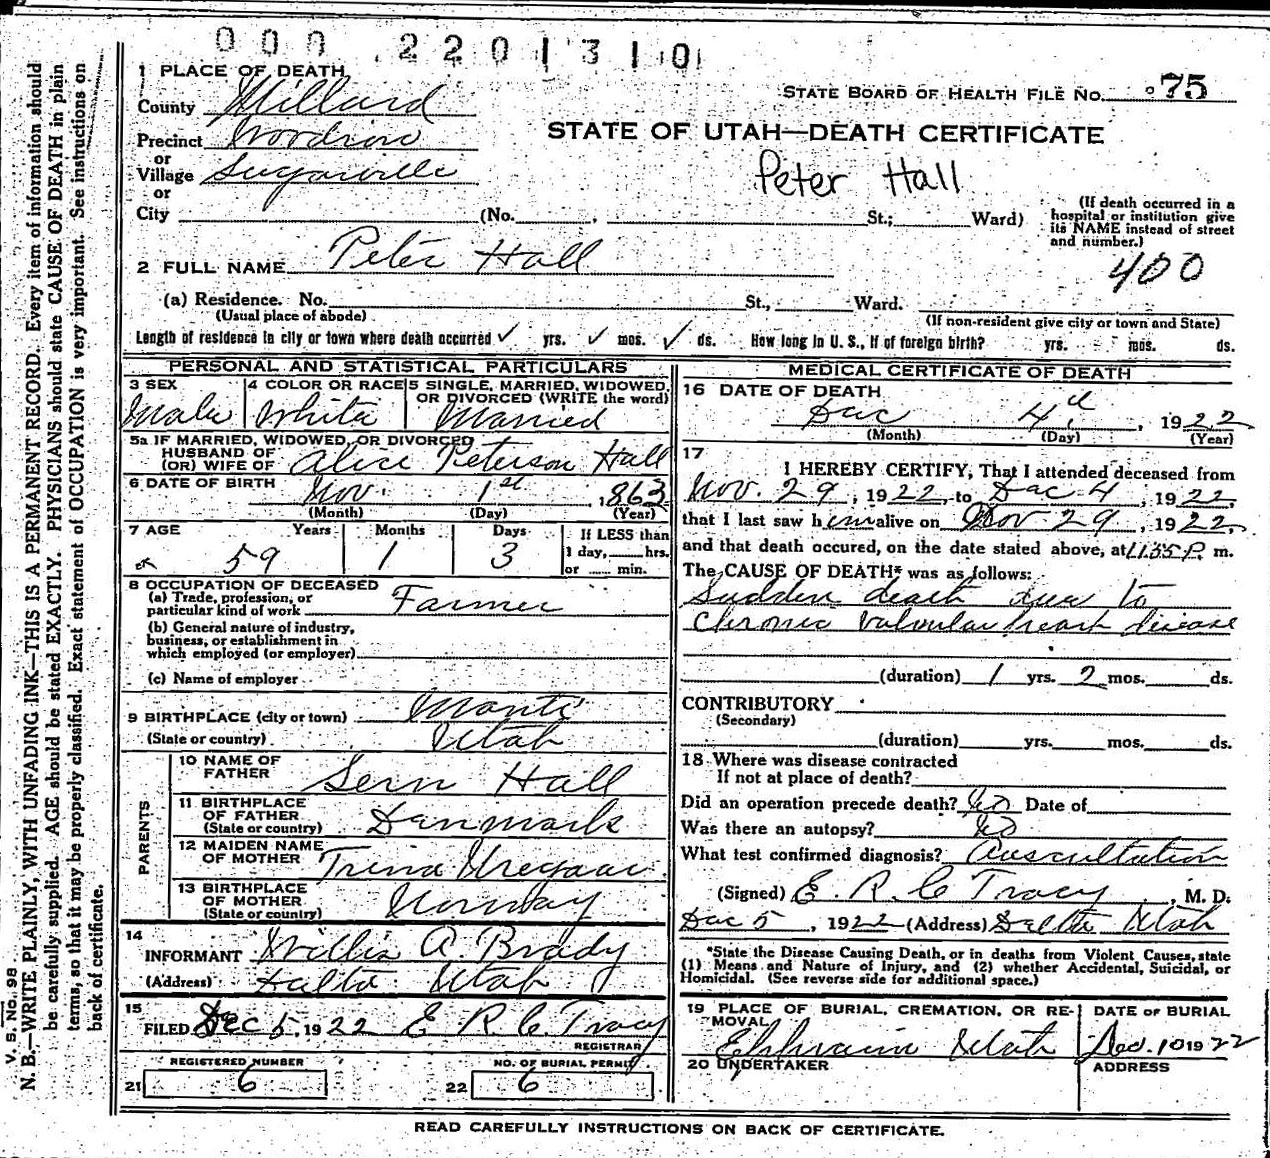 000 2201310
1 PLACE OF DEATH
STATE BOARD OF HEALTH FILE NO. 75
County Millard
STATE OF UTAH—DEATH CERTIFICATE
Precinct Woodrow
or
Village Sugarville
Peter Hall
or
City (No. , St.; Ward)
(If death occurred in a
hospital or institution give
its NAME instead of street
and number.)
2 FULL NAME Peter Hall
400
(a) Residence. No. St., Ward.
(Usual place of abode)
(If non-resident give city or town and State)
Length of residence in city or town where death occurred ✓ yrs. ✓ mos. ✓ ds. How long in U. S., if of foreign birth? yrs. mos. ds.
PERSONAL AND STATISTICAL PARTICULARS
3 SEX
Male
4 COLOR OR RACE
White
5 SINGLE, MARRIED, WIDOWED,
OR DIVORCED (WRITE the word)
Married
5a IF MARRIED, WIDOWED, OR DIVORCED
HUSBAND OF
(OR) WIFE OF Alice Peterson Hall
6 DATE OF BIRTH
Nov. 1st, 1863
(Month) (Day) (Year)
7 AGE Years Months Days If LESS than
59 1 3 1 day, hrs.
or min.
8 OCCUPATION OF DECEASED
(a) Trade, profession, or
particular kind of work Farmer
(b) General nature of industry,
business, or establishment in
which employed (or employer)
(c) Name of employer
9 BIRTHPLACE (city or town) Manti
(State or country) Utah
PARENTS
10 NAME OF
FATHER Sern Hall
11 BIRTHPLACE
OF FATHER
(State or country) Danmark
12 MAIDEN NAME
OF MOTHER Trina
13 BIRTHPLACE
OF MOTHER
(State or country) Norway
14
INFORMANT Willis A Brady
(Address) Delta Utah
15
FILED Dec 5, 1922 E R C Tracy
REGISTRAR
REGISTERED NUMBER
21 6
NO. OF BURIAL PERMIT
22 6
MEDICAL CERTIFICATE OF DEATH
16 DATE OF DEATH
Dec 4th, 1922
(Month) (Day) (Year)
17
I HEREBY CERTIFY, That I attended deceased from
Nov. 29, 1922, to Dec 4, 1922,
that I last saw him alive on Nov 29, 1922,
and that death occured, on the date stated above, at 11:55 P. m.
The CAUSE OF DEATH* was as follows:
Sudden death due to
chronic valvular heart disease
(duration) 1 yrs. 2 mos. ds.
CONTRIBUTORY
(Secondary)
(duration) yrs. mos. ds.
18 Where was disease contracted
If not at place of death?
Did an operation precede death? No Date of
Was there an autopsy? No
What test confirmed diagnosis? Auscultation
(Signed) E. R. C Tracy, M. D.
Dec 5, 1922 (Address) Delta Utah
*State the Disease Causing Death, or in deaths from Violent Causes, state
(1) Means and Nature of Injury, and (2) whether Accidental, Suicidal, or
Homicidal. (See reverse side for additional space.)
19 PLACE OF BURIAL, CREMATION, OR RE-
MOVAL
Ephraim Utah
DATE OF BURIAL
Dec. 10 1922
20 UNDERTAKER
ADDRESS
READ CAREFULLY INSTRUCTIONS ON BACK OF CERTIFICATE.
V. S. No. 98
N. B.—WRITE PLAINLY, WITH UNFADING INK—THIS IS A PERMANENT RECORD. Every item of information should
be carefully supplied. AGE should be stated EXACTLY. PHYSICIANS should state CAUSE OF DEATH in plain
terms, so that it may be properly classified. Exact statement of OCCUPATION is very important. See instructions on
back of certificate.